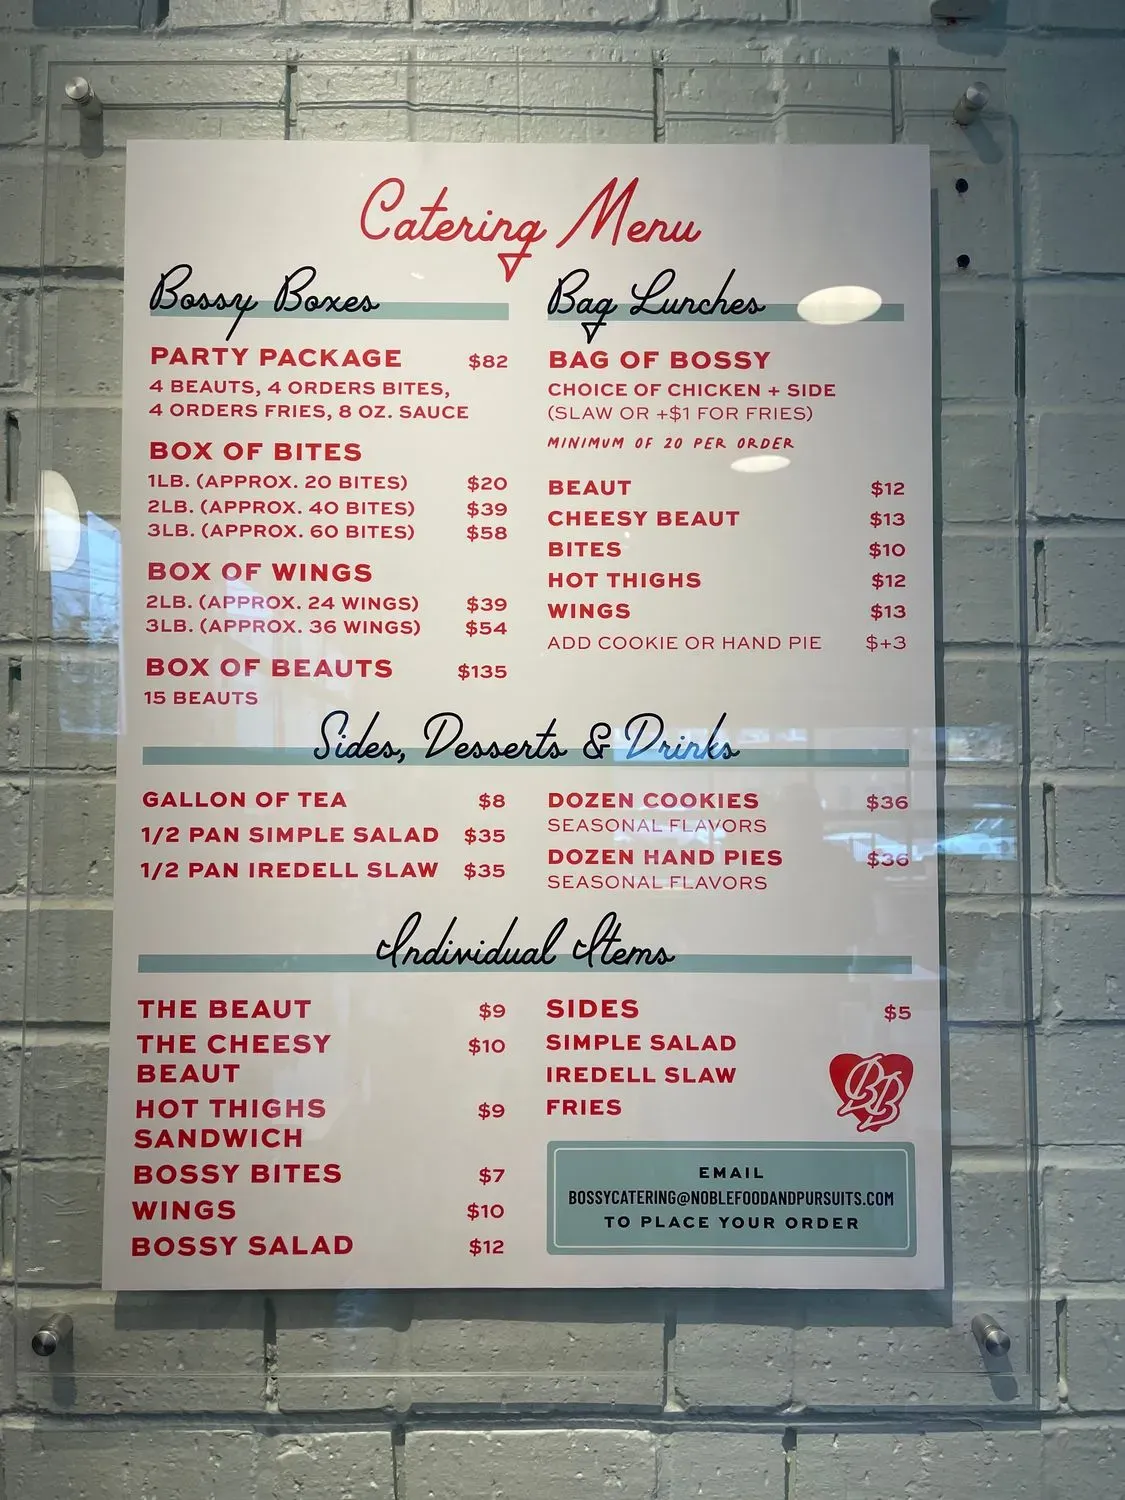 Catering Menu
Bossy Boxes
PARTY PACKAGE $82
4 BEAUTS, 4 ORDERS BITES,
4 ORDERS FRIES, 8 OZ. SAUCE
BOX OF BITES
1LB. (APPROX. 20 BITES) $20
2LB. (APPROX. 40 BITES) $39
3LB. (APPROX. 60 BITES) $58
BOX OF WINGS
2LB. (APPROX. 24 WINGS) $39
3LB. (APPROX. 36 WINGS) $54
BOX OF BEAUTS $135
15 BEAUTS
Bag Lunches
BAG OF BOSSY
CHOICE OF CHICKEN + SIDE
(SLAW OR +$1 FOR FRIES)
MINIMUM OF 20 PER ORDER
BEAUT $12
CHEESY BEAUT $13
BITES $10
HOT THIGHS $12
WINGS $13
ADD COOKIE OR HAND PIE $+3
Sides, Desserts & Drinks
GALLON OF TEA $8
1/2 PAN SIMPLE SALAD $35
1/2 PAN IREDELL SLAW $35
DOZEN COOKIES $36
SEASONAL FLAVORS
DOZEN HAND PIES $36
SEASONAL FLAVORS
Individual Items
THE BEAUT $9
THE CHEESY $10
BEAUT
HOT THIGHS $9
SANDWICH
BOSSY BITES $7
WINGS $10
BOSSY SALAD $12
SIDES $5
SIMPLE SALAD
IREDELL SLAW
FRIES
BB
EMAIL
BOSSYCATERING@NOBLEFOODANDPURSUITS.COM
TO PLACE YOUR ORDER